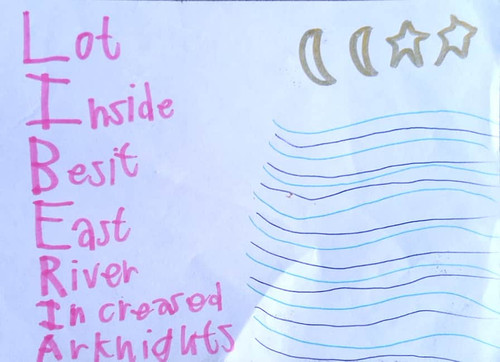 Lot
Inside
Besit
East
River
Increased
Arknights